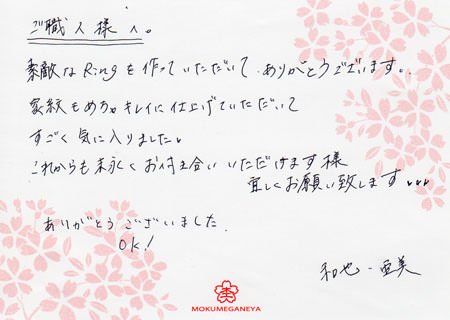 ご職人様へ。
素敵なRingを作っていただいて、ありがとうございます。
家紋もめちゃキレイに仕上げていただいて
すごく気に入りました。
これからも末永くお付き合いいただけます様
宜しくお願い致します
ありがとうございました。
OK!
和也・亜美
MOKUMEGANEYA